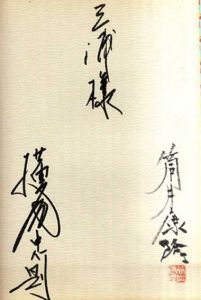 三浦様
筒井康隆
横尾忠則